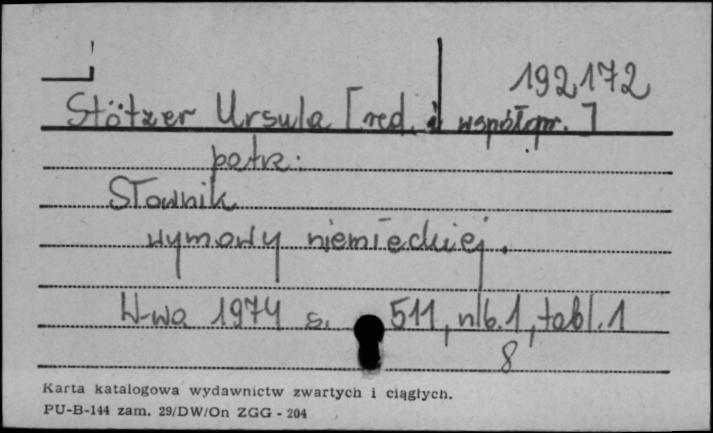 192172
Stötzer Ursula [red. i współopr.]
patrz:
Słownik
wymowy niemieckiej.
W-wa 1974 s. 511, nlb. 1, tabl. 1
8
Karta katalogowa wydawnictw zwartych i ciągłych.
PU-B-144 zam. 29/DW/On ZGG - 204